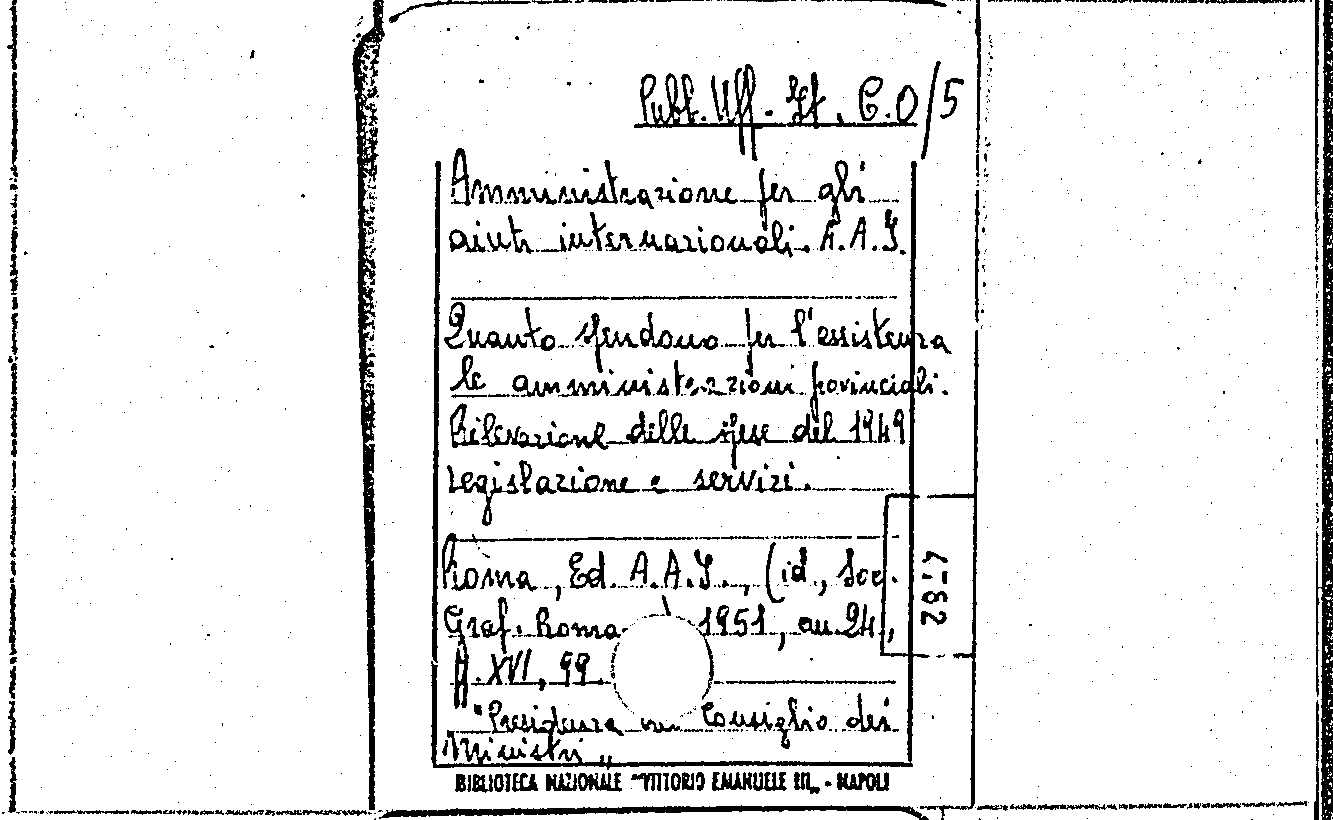 Pubb. Uff. It. C.O/5
Amministrazione per gli
aiuti internazionali. A.A.I.
Quanto spendono per l'assistenza
le amministrazioni provinciali.
Rilevazione delle spese del 1949
legislazione e servizi.
Roma, Ed. A.A.I., (id., Soc.
Graf. Roma 1951, au. 24,
pp. XVI, 99.
"Presidenza Consiglio dei
Ministri„
BIBLIOTECA NAZIONALE "VITTORIO EMANUELE III„ - NAPOLI